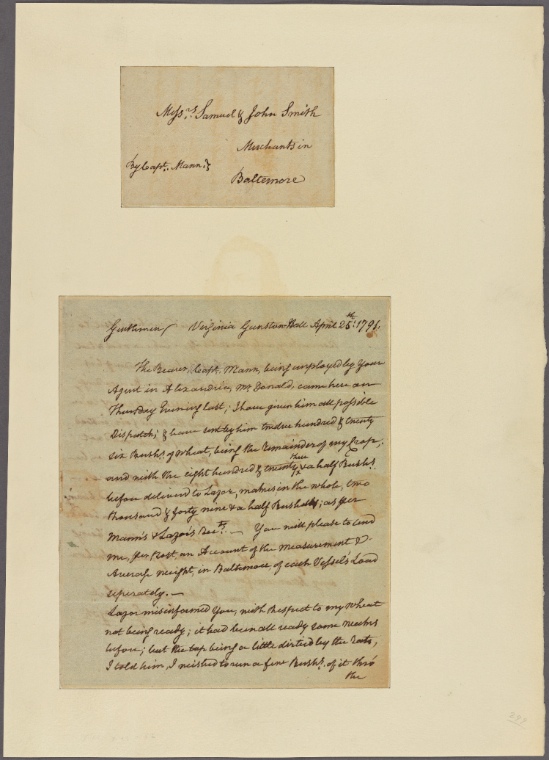 Mess.rs Samuel & John Smith
Merchants in
By Capt. Mann.}
Baltemore
Gentlemen Virginia Gunston-Hall April 25th. 1791.
The Bearer, Capt. Mann, being employed by Your
Agent in Alexandria, Mr. Donald came here on
Thursday Evening last; I have given him all possible
Dispatch; & have sent by him twelve hundred & twenty
six Bushs. of Wheat, being the Remainder of my Crop;
and with the eight hundred & twenty three & a half Bushs.
before delivered to Lazor, makes in the whole, two
thousand & forty nine & a half Bushells; as per
Mann's & Lazor's Rects. — You will please to send
me, per Post, an Account of the Measurement &
Average weight, in Baltimore of each Vessel's Load
seperately. —
Lazor misinformed You, with Respect to my Wheat
not being ready; it had been all ready some weeks
before; but the top being a little dirtied by the Rats,
I told him, I wished to run a few Bushs. of it thro'
the